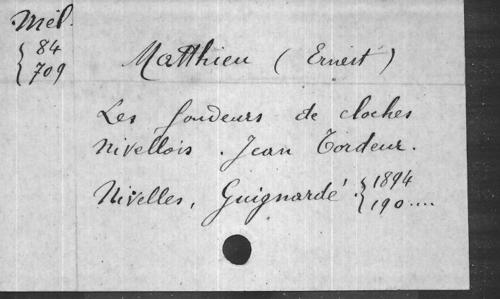 Mél.
{ 84
709
Matthieu (Ernest)
Les fondeurs de cloches
nivellois. Jean Tordeur.
Nivelles, Guignardé { 1894
190....